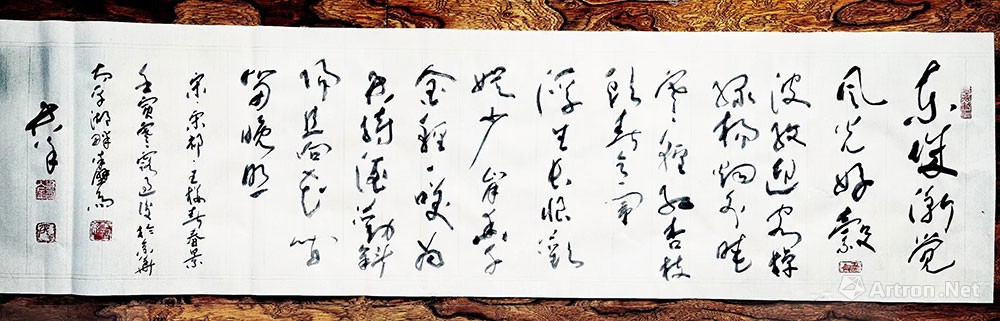 东城渐觉
风光好縠
波纹迎客棹
绿杨烟外晓
寒轻红杏枝
头春意闹
浮生长恨欢
娱少肯爱千
金轻一笑为
君持酒劝斜
阳且向花间
留晚照
宋·宋祁·玉楼春·春景
壬寅寒露过后於京华
太平湖畔
Artron.Net